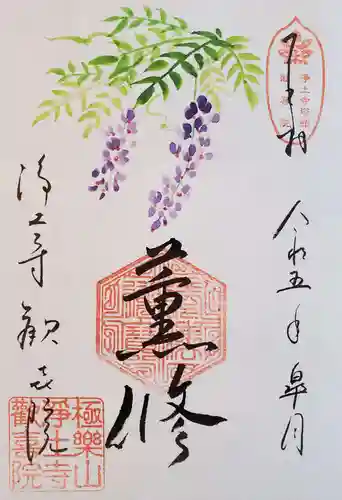 奉拝
浄土寺塔頭
歓喜院
令和五年 皐月
薫修
浄土寺 歓喜院
極樂山
浄土寺
歡喜院